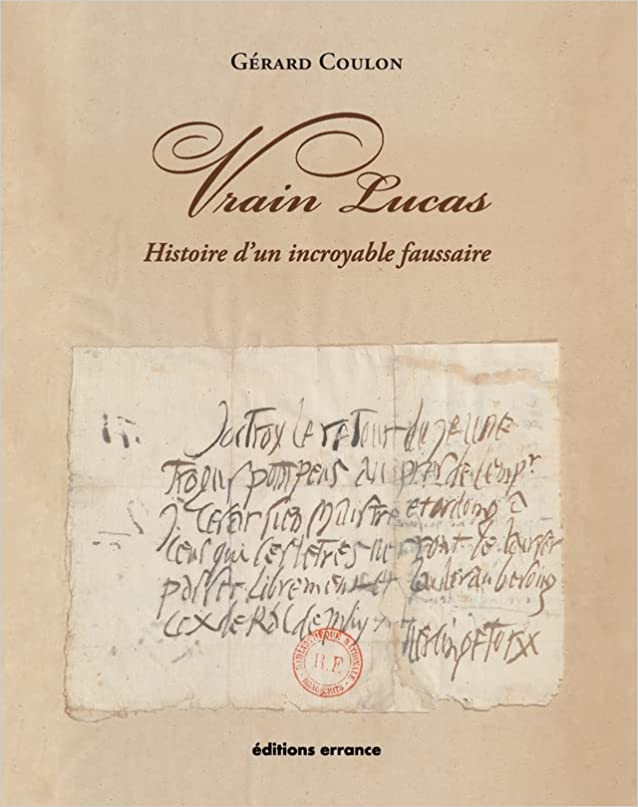 GÉRARD COULON
Vrain Lucas
Histoire d'un incroyable faussaire
Joctroy le retour du jeune
Trogus pompeus aupres de lempr
J Cesar sien maistre et ordonn a
ceus qui ces letres verront le laisser
passer librement et laider au besoing
ce x de Kal de may
BIBLIOTHÈQUE NATIONALE
R.F.
MANUSCRITS
éditions errance